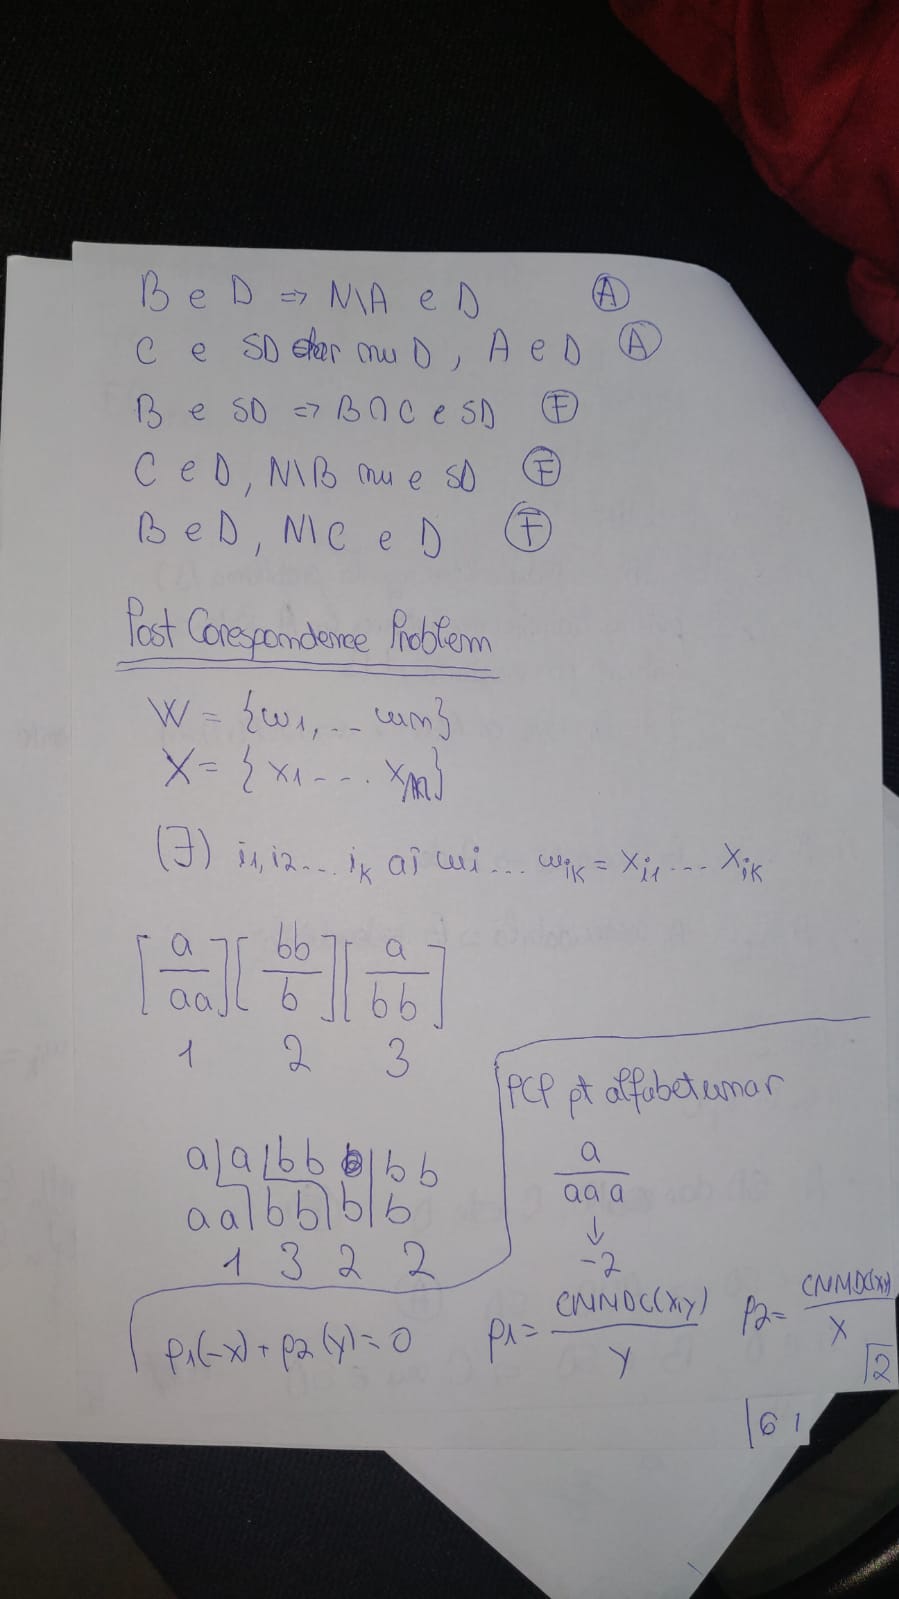 B e D => N\A e D (A)
C e SD dar nu D, A e D (A)
B e SD => B∩C e SD (F)
C e D, N\B nu e SD (F)
B e D, N\C e D (F)
Post Corespondence Problem
W = {w1, ... wn}
X = {x1 ... xn}
(∃) i1, i2 ... ik aî wi ... wik = xi1 ... xik
[a/aa] [bb/b] [a/bb]
1 2 3
a|a|bb|bb
aa|bb|b|b
1 3 2 2
PCP pt alfabet unar
a
aaa
↓
-2
p1(-x) + p2(y) = 0
p1 = CMMDC(x,y)/y
p2 = CMMDC(x,y)/x
2
|6 1